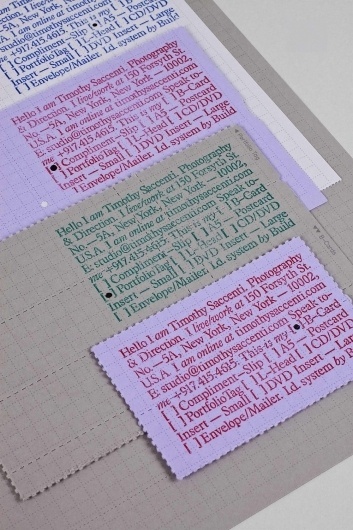 studio@timothysaccenti.com. Speak to—
me +917.415.4615. This is my [ ] B-Card
[ ] Compliment—Slip [ ] A5 — Postcard
[ ] Portfolio Tag [ ] L—Head [ ] CD/DVD
Insert — Small [ ] DVD Insert — Long
[ ] Envelope/Mailer. I.d. system by Build
Hello I am Timothy Saccenti. Photography
& Direction. I live/work at 150 Forsyth St.
No.—5A, New York, New York — 10002,
U.S.A. I am online at timothysaccenti.com
E: studio@timothysaccenti.com. Speak to—
me +917.415.4615. This is my [ ] B-Card
[ ] Compliment—Slip [ ] A5 — Postcard
[ ] Portfolio Tag [ ] L—Head [ ] CD/DVD
Insert — Small [ ] DVD Insert — Long
[ ] Envelope/Mailer. I.d. system by Build
Hello I am Timothy Saccenti. Photography
& Direction. I live/work at 150 Forsyth St.
No.—5A, New York, New York — 10002,
U.S.A. I am online at timothysaccenti.com
E: studio@timothysaccenti.com. Speak to—
me +917.415.4615. This is my [ ] B-Card
[ ] Compliment—Slip [ ] A5 — Postcard
[ ] Portfolio Tag [ ] L—Head [ ] CD/DVD
Insert — Small [ ] DVD Insert — Long
[ ] Envelope/Mailer. I.d. system by Build
Hello I am Timothy Saccenti. Photography
& Direction. I live/work at 150 Forsyth St.
No.—5A, New York, New York — 10002,
U.S.A. I am online at timothysaccenti.com
E: studio@timothysaccenti.com. Speak to—
me +917.415.4615. This is my [ ] B-Card
[ ] Compliment—Slip [ ] A5 — Postcard
[ ] Portfolio Tag [ ] L—Head [ ] CD/DVD
Insert — Small [ ] DVD Insert — Long
[ ] Envelope/Mailer. I.d. system by Build